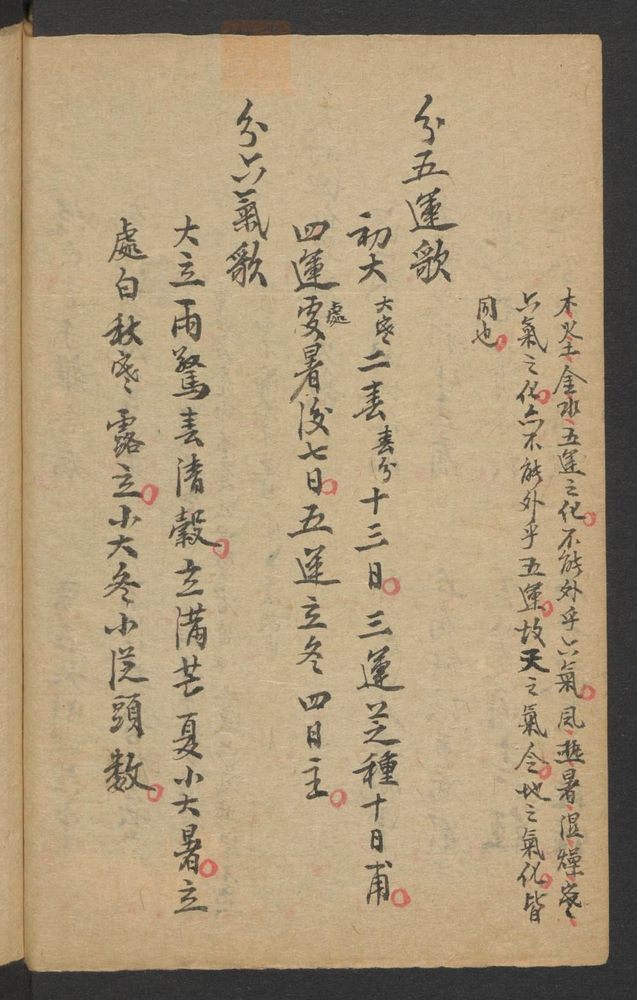 木火土金水五運之化不能外乎六氣風熱暑湿燥寒
六氣之化亦不能外乎五運故天之氣令地之氣化皆
同也
分五運歌
初大大寒二春春分十三日三運芒種十日甫
四運処暑後七日五運立冬四日主
分六氣歌
大立雨驚春清穀立滿芒夏小大暑立
處白秋寒露立小大冬小從頭數